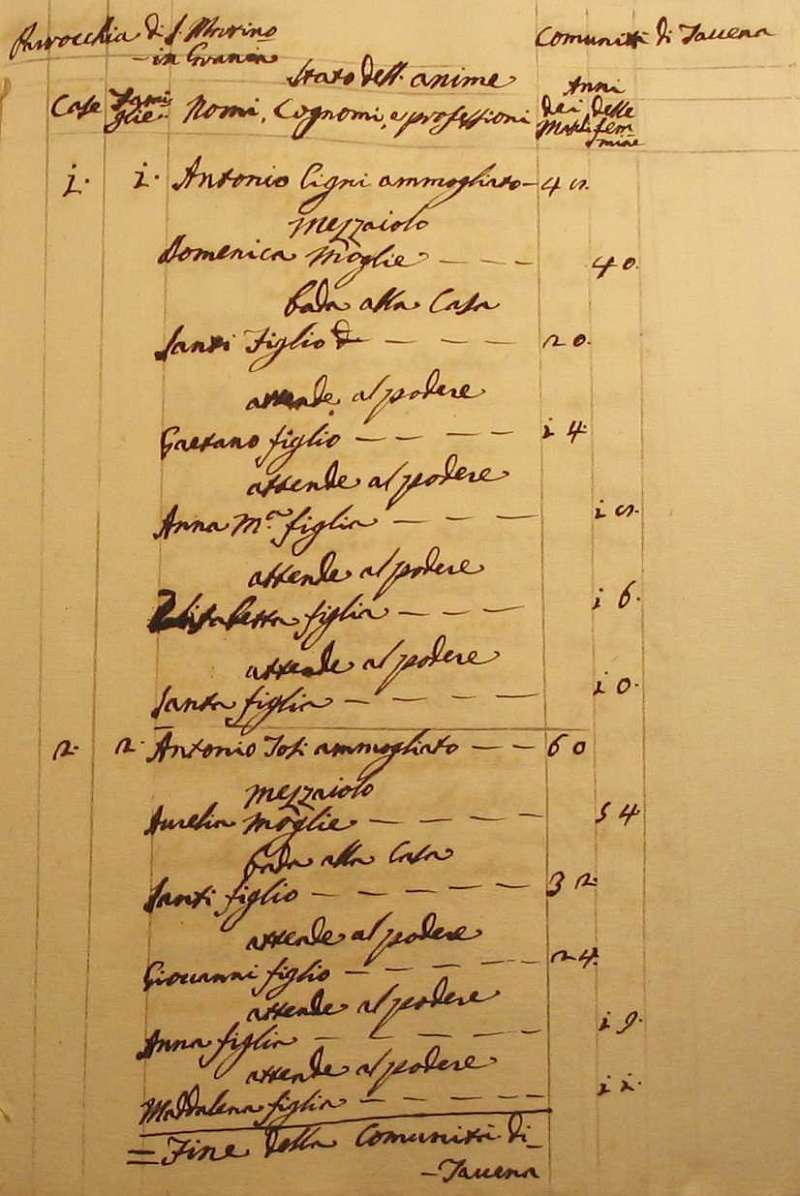 Parrocchia di S. Martino
in Gvanina
Comunità di Jacena
Stato dell'anime
Case Fami glie Nomi, Cognomi, e professioni Anni dei Maschi delle fem mine
i. i. Antonio Cigni ammogliato 4 5.
mezzaiolo
Domenica Moglie 40.
bada alla Casa
Santi Figlio 20.
attende al podere
Gaetano figlio i4.
attende al podere
Anna Ma. figlia i5.
attende al podere
Elisabetta figlia i6.
attende al podere
Santa figlia i0.
2. 2. Antonio Tosi ammogliato 60
mezzaiolo
Aurelia Moglie 54
bada alla Casa
Santi figlio 32.
attende al podere
Giovanni figlio 24.
attende al podere
Anna figlia i9.
attende al podere
Maddalena figlia ii.
= Fine della Comunità di
Jacena